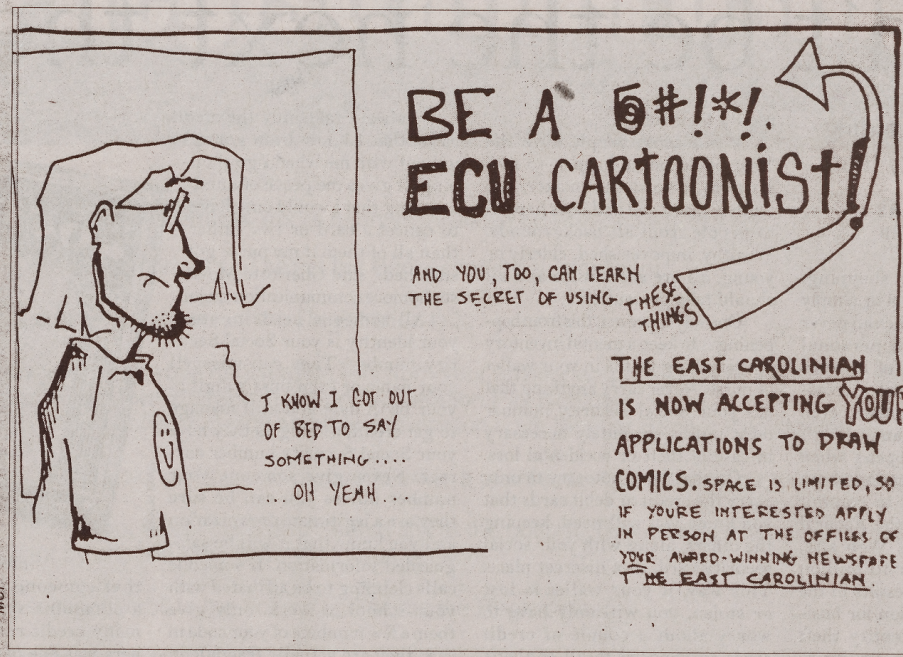 I KNOW I GOT OUT
OF BED TO SAY
SOMETHING....
... OH YEAH...
BE A @#!*!.
ECU CARTOONIST!
AND YOU, TOO, CAN LEARN
THE SECRET OF USING THESE
THINGS
THE EAST CAROLINIAN
IS NOW ACCEPTING YOUR
APPLICATIONS TO DRAW
COMICS. SPACE IS LIMITED, SO
IF YOU'RE INTERESTED APPLY
IN PERSON AT THE OFFICES OF
YOUR AWARD-WINNING NEWSPAPE
THE EAST CAROLINIAN.